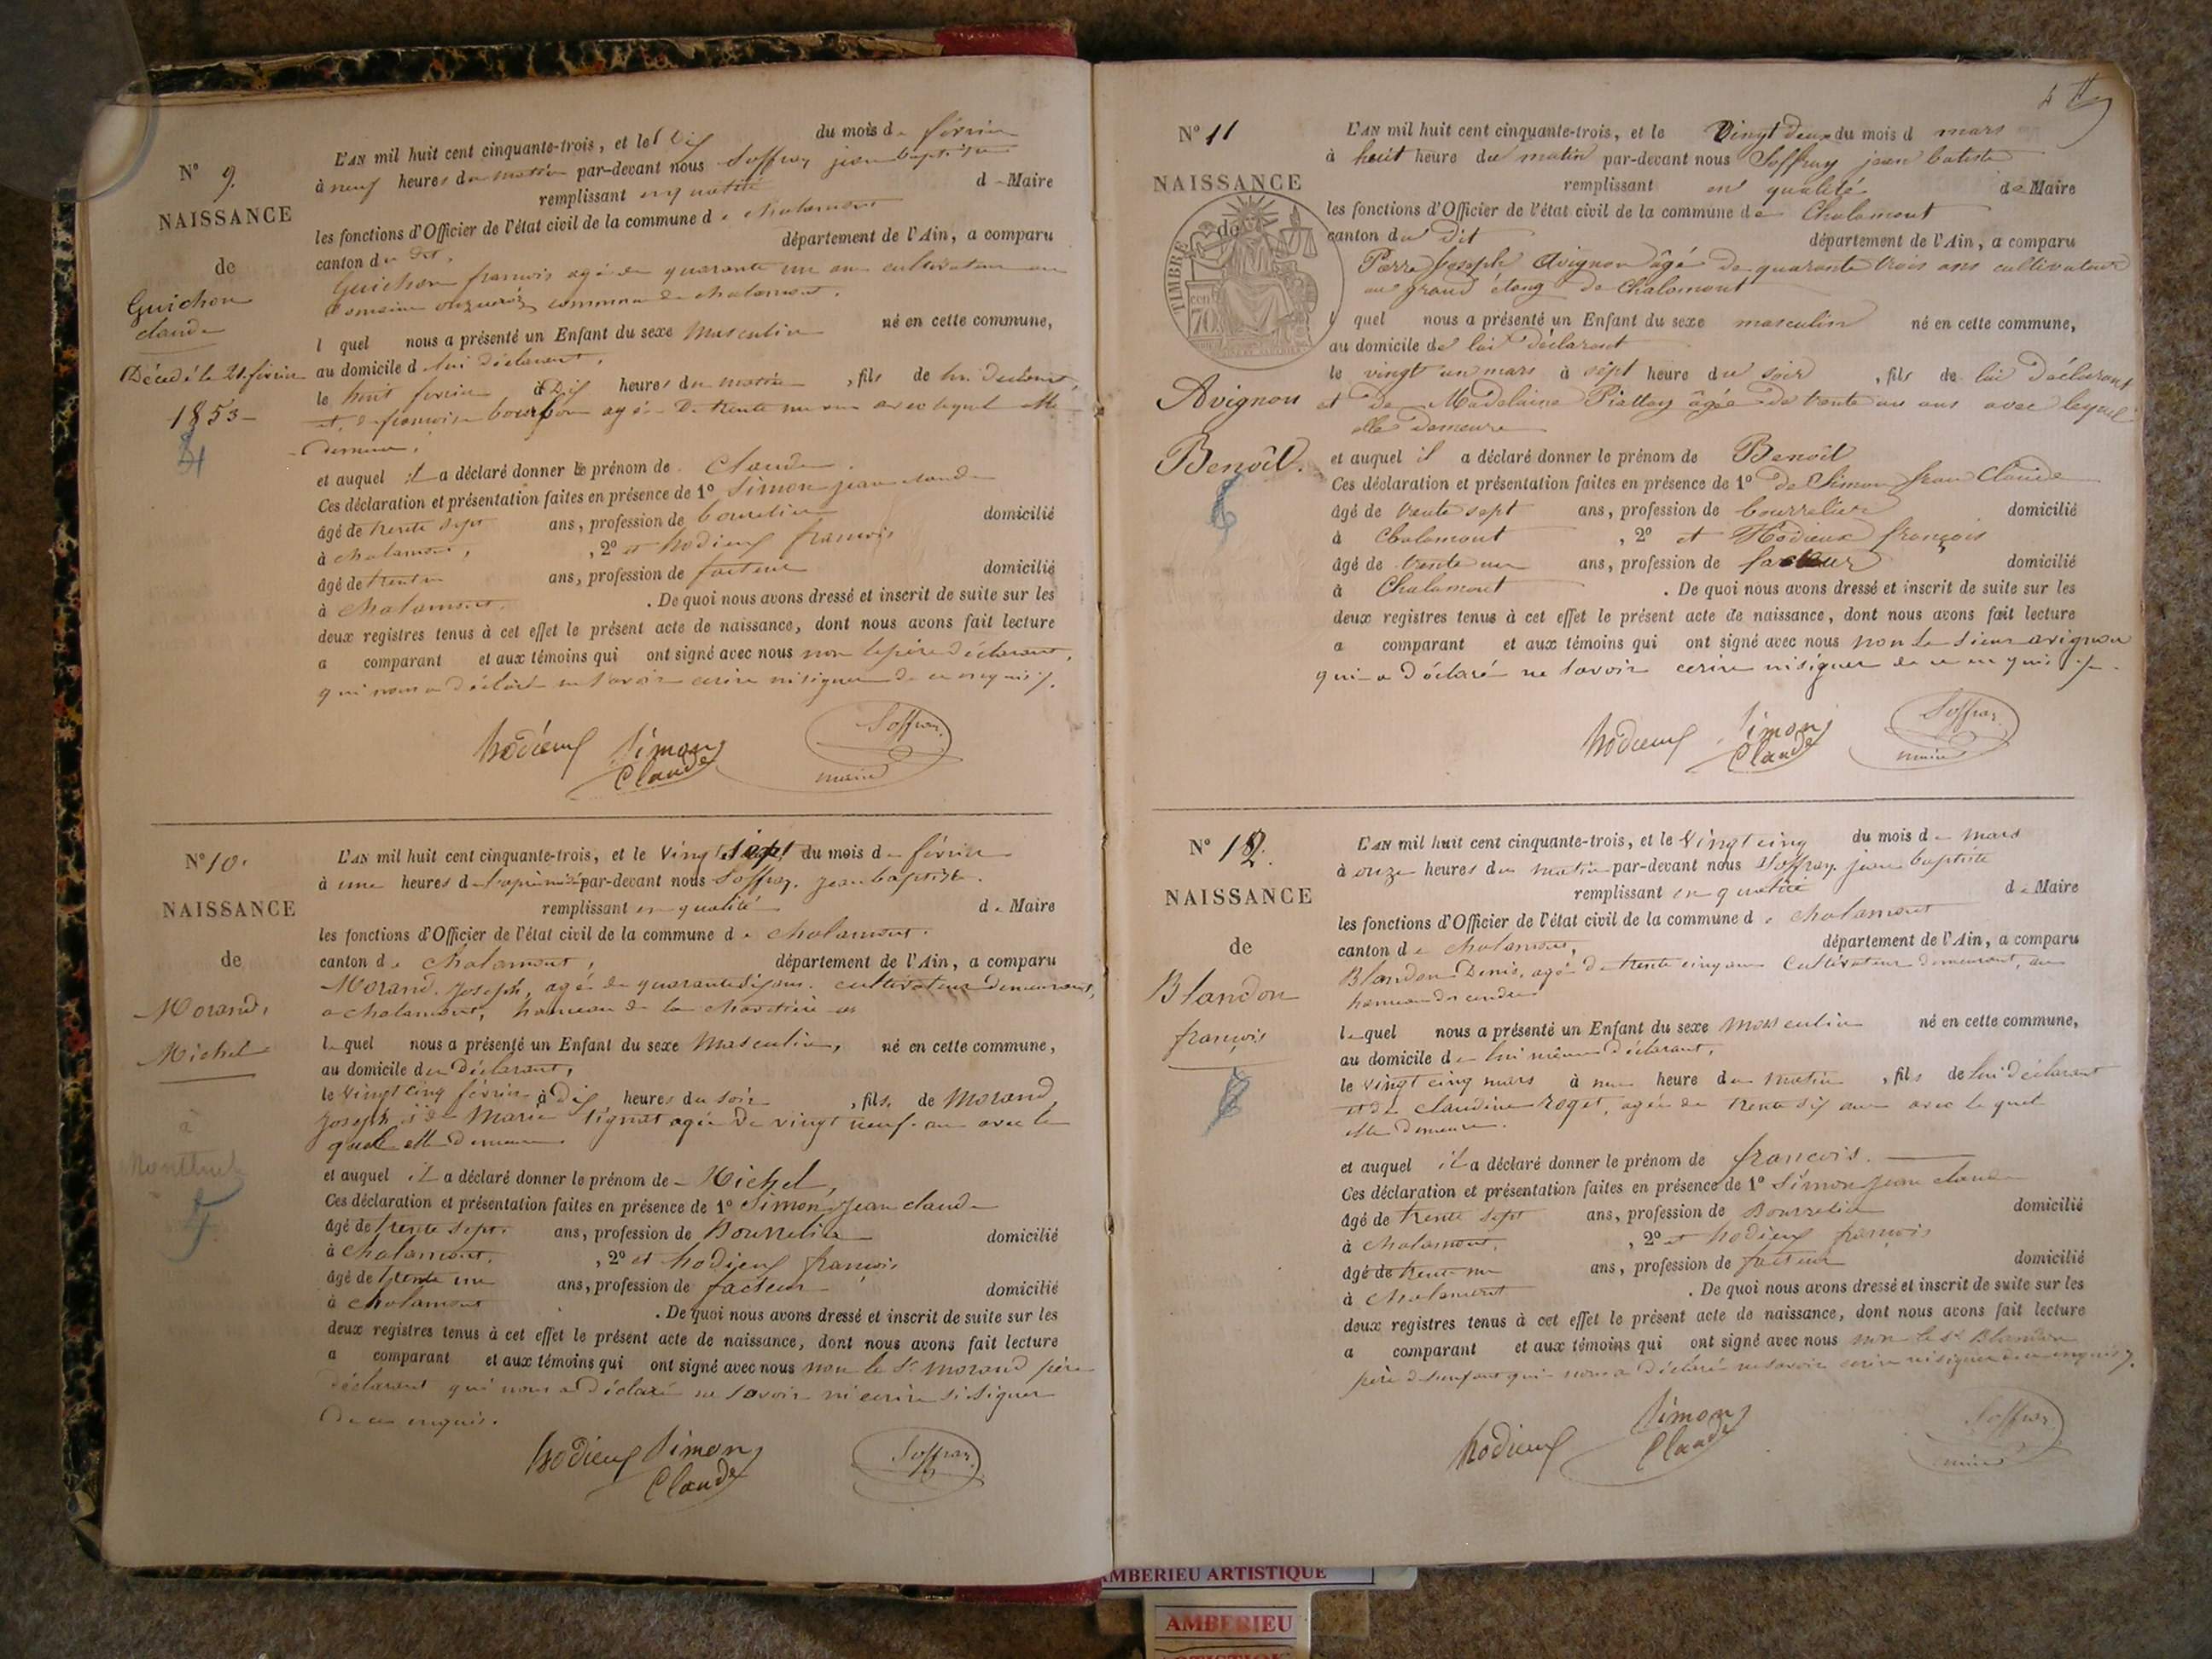 N° 9.
NAISSANCE
de
Guichon
claude
Décédé le 21 février
1853
L'AN mil huit cent cinquante-trois, et le dix du mois de février
à neuf heures du matin par-devant nous Soffray jean baptiste
remplissant en qualité de Maire
les fonctions d'Officier de l'état civil de la commune de chalamont
canton du dit, département de l'Ain, a comparu
Guichon francois agé de quarante un ans cultivateur au
domaine commune de chalamont.
lequel nous a présenté un Enfant du sexe Masculin né en cette commune,
au domicile de lui déclarant,
le huit fevrier à Dix heures du matin, fils de lui déclarant,
et de francoise bourbon agée de trente un ans avec lequel elle
demeure,
et auquel il a déclaré donner le prénom de Claude.
Ces déclaration et présentation faites en présence de 1° Simon jean claude
âgé de trente sept ans, profession de bourelier domicilié
à chalamont, , 2° et hodieux francois
âgé de trente un ans, profession de facteur domicilié
à chalamont. De quoi nous avons dressé et inscrit de suite sur les
deux registres tenus à cet effet le présent acte de naissance, dont nous avons fait lecture
a comparant et aux témoins qui ont signé avec nous non le père déclarant,
qui nous a déclaré ne savoir ecrire ni signer de ce enquis.
hodieux Simon Claude Soffray maire
N° 10.
NAISSANCE
de
Morand,
Michel
à
Montluel
L'AN mil huit cent cinquante-trois, et le vingt sept du mois de février
à une heures de l'apremidi par-devant nous Soffray. jean baptiste.
remplissant en qualité de Maire
les fonctions d'Officier de l'état civil de la commune de chalamont.
canton de chalamont, département de l'Ain, a comparu
Morand. Joseph, agé de quarante dix ans. cultivateur demeurant,
a chalamont, hameau de la
lequel nous a présenté un Enfant du sexe Masculin, né en cette commune,
au domicile du Déclarant,
le vingt cinq février à dix heures du soir, fils. de Morand,
Joseph, & de Marie tignat agée de vingt neuf ans avec le
quel elle demeure
et auquel il a déclaré donner le prénom de Michel,
Ces déclaration et présentation faites en présence de 1° Simon jean claude
âgé de trente sept. ans, profession de Bourrelier domicilié
à chalamont. , 2° et hodieux françois
âgé de trente une ans, profession de facteur domicilié
à chalamont. De quoi nous avons dressé et inscrit de suite sur les
deux registres tenus à cet effet le présent acte de naissance, dont nous avons fait lecture
a comparant et aux témoins qui ont signé avec nous non le Sr Morand père
déclarant qui nous a déclaré ne savoir ni ecrire ni Signer
de ce enquis.
hodieux Simon Claude Soffray
N° 11
NAISSANCE
de
TIMBRE
70 cent
Avignon
Benoît.
L'AN mil huit cent cinquante-trois, et le Vingt deux du mois d mars
à huit heure du matin par-devant nous Soffray jean batiste
remplissant en qualité de Maire
les fonctions d'Officier de l'état civil de la commune de Chalamont
canton du dit département de l'Ain, a comparu
Pierre Joseph Avignon âgé de quarante trois ans cultivateur
au grand étang de Chalamont
l quel nous a présenté un Enfant du sexe masculin né en cette commune,
au domicile de lui déclarant
le vingt un mars à sept heure du soir, fils de lui déclarant
et de Madelaine Piattoy âgée de trente un ans avec lequel
elle demeure
et auquel il a déclaré donner le prénom de Benoît
Ces déclaration et présentation faites en présence de 1° de Simon Jean Claude
âgé de trente sept ans, profession de bourrelier domicilié
à Chalamont , 2° et Hodieux françois
âgé de trente un ans, profession de facteur domicilié
à Chalamont. De quoi nous avons dressé et inscrit de suite sur les
deux registres tenus à cet effet le présent acte de naissance, dont nous avons fait lecture
a comparant et aux témoins qui ont signé avec nous non le sieur avignon
qui a déclaré ne savoir ecrire ni signer de ce enquis
hodieux Simon Claude Soffray maire
N° 12.
NAISSANCE
de
Blandon
françois
L'AN mil huit cent cinquante-trois, et le Vingt cinq du mois de mars
à onze heures du matin par-devant nous Soffray. jean baptiste
remplissant en qualité de Maire
les fonctions d'Officier de l'état civil de la commune de chalamont
canton de chalamont, département de l'Ain, a comparu
Blandon Denis, agé de trente cinq ans Cultivateur demeurant, au
hameau
lequel nous a présenté un Enfant du sexe Masculin né en cette commune,
au domicile de lui même déclarant,
le vingt cinq mars à une heure du matin, fils de lui déclarant
et de claudine roget, agée de trente six ans avec le quel
elle demeure.
et auquel il a déclaré donner le prénom de francois.
Ces déclaration et présentation faites en présence de 1° Simon jean claude
âgé de trente sept ans, profession de Bourrelier domicilié
à chalamont. , 2° et hodieux françois
âgé de trente un ans, profession de facteur domicilié
à chalamont. De quoi nous avons dressé et inscrit de suite sur les
deux registres tenus à cet effet le présent acte de naissance, dont nous avons fait lecture
a comparant et aux témoins qui ont signé avec nous non le Sr Blandon
père de l'enfant qui nous a déclaré ne savoir ecrire ni signer de ce enquis.
hodieux Simon Claude Soffray maire
AMBERIEU ARTISTIQUE
AMBERIEU